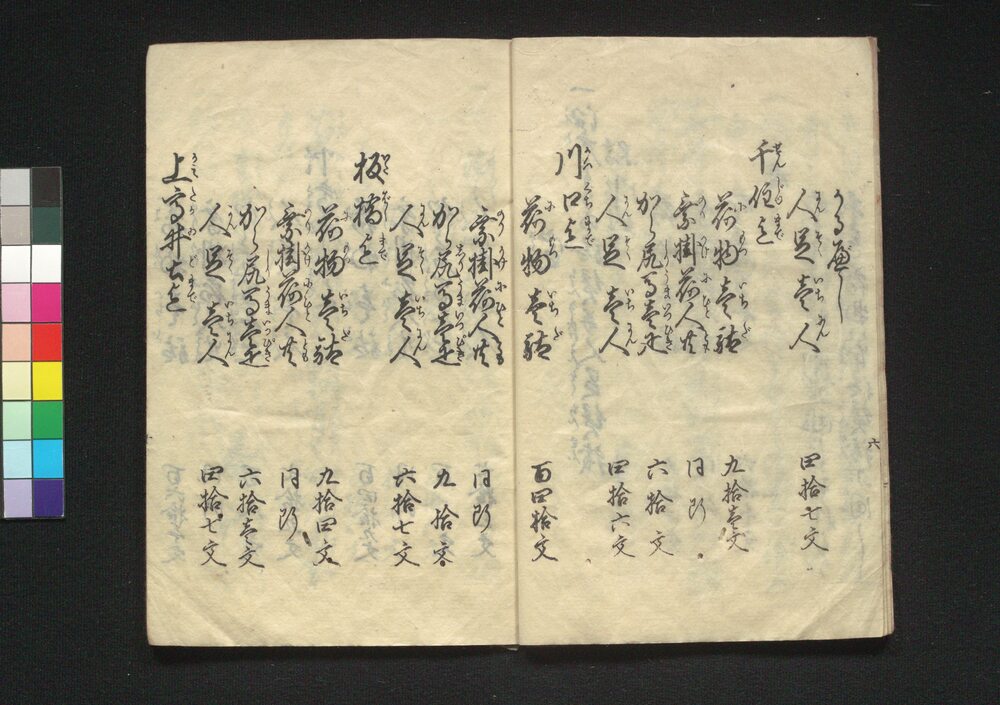 うるべし
人足壱人 四拾七文
千住迄
荷物壱駄 九拾壱文
乗掛荷人共 同断
から尻馬壱疋 六拾一文
人足壱人 四拾六文
川口迄
荷物壱駄 百四拾文
乗掛荷人共 同断
から尻馬壱疋 九拾文
人足壱人 六拾七文
板橋迄
荷物壱駄 九拾四文
乗掛荷人共 同断
から尻馬壱疋 六拾壱文
人足壱人 四拾七文
上高井戸迄
六